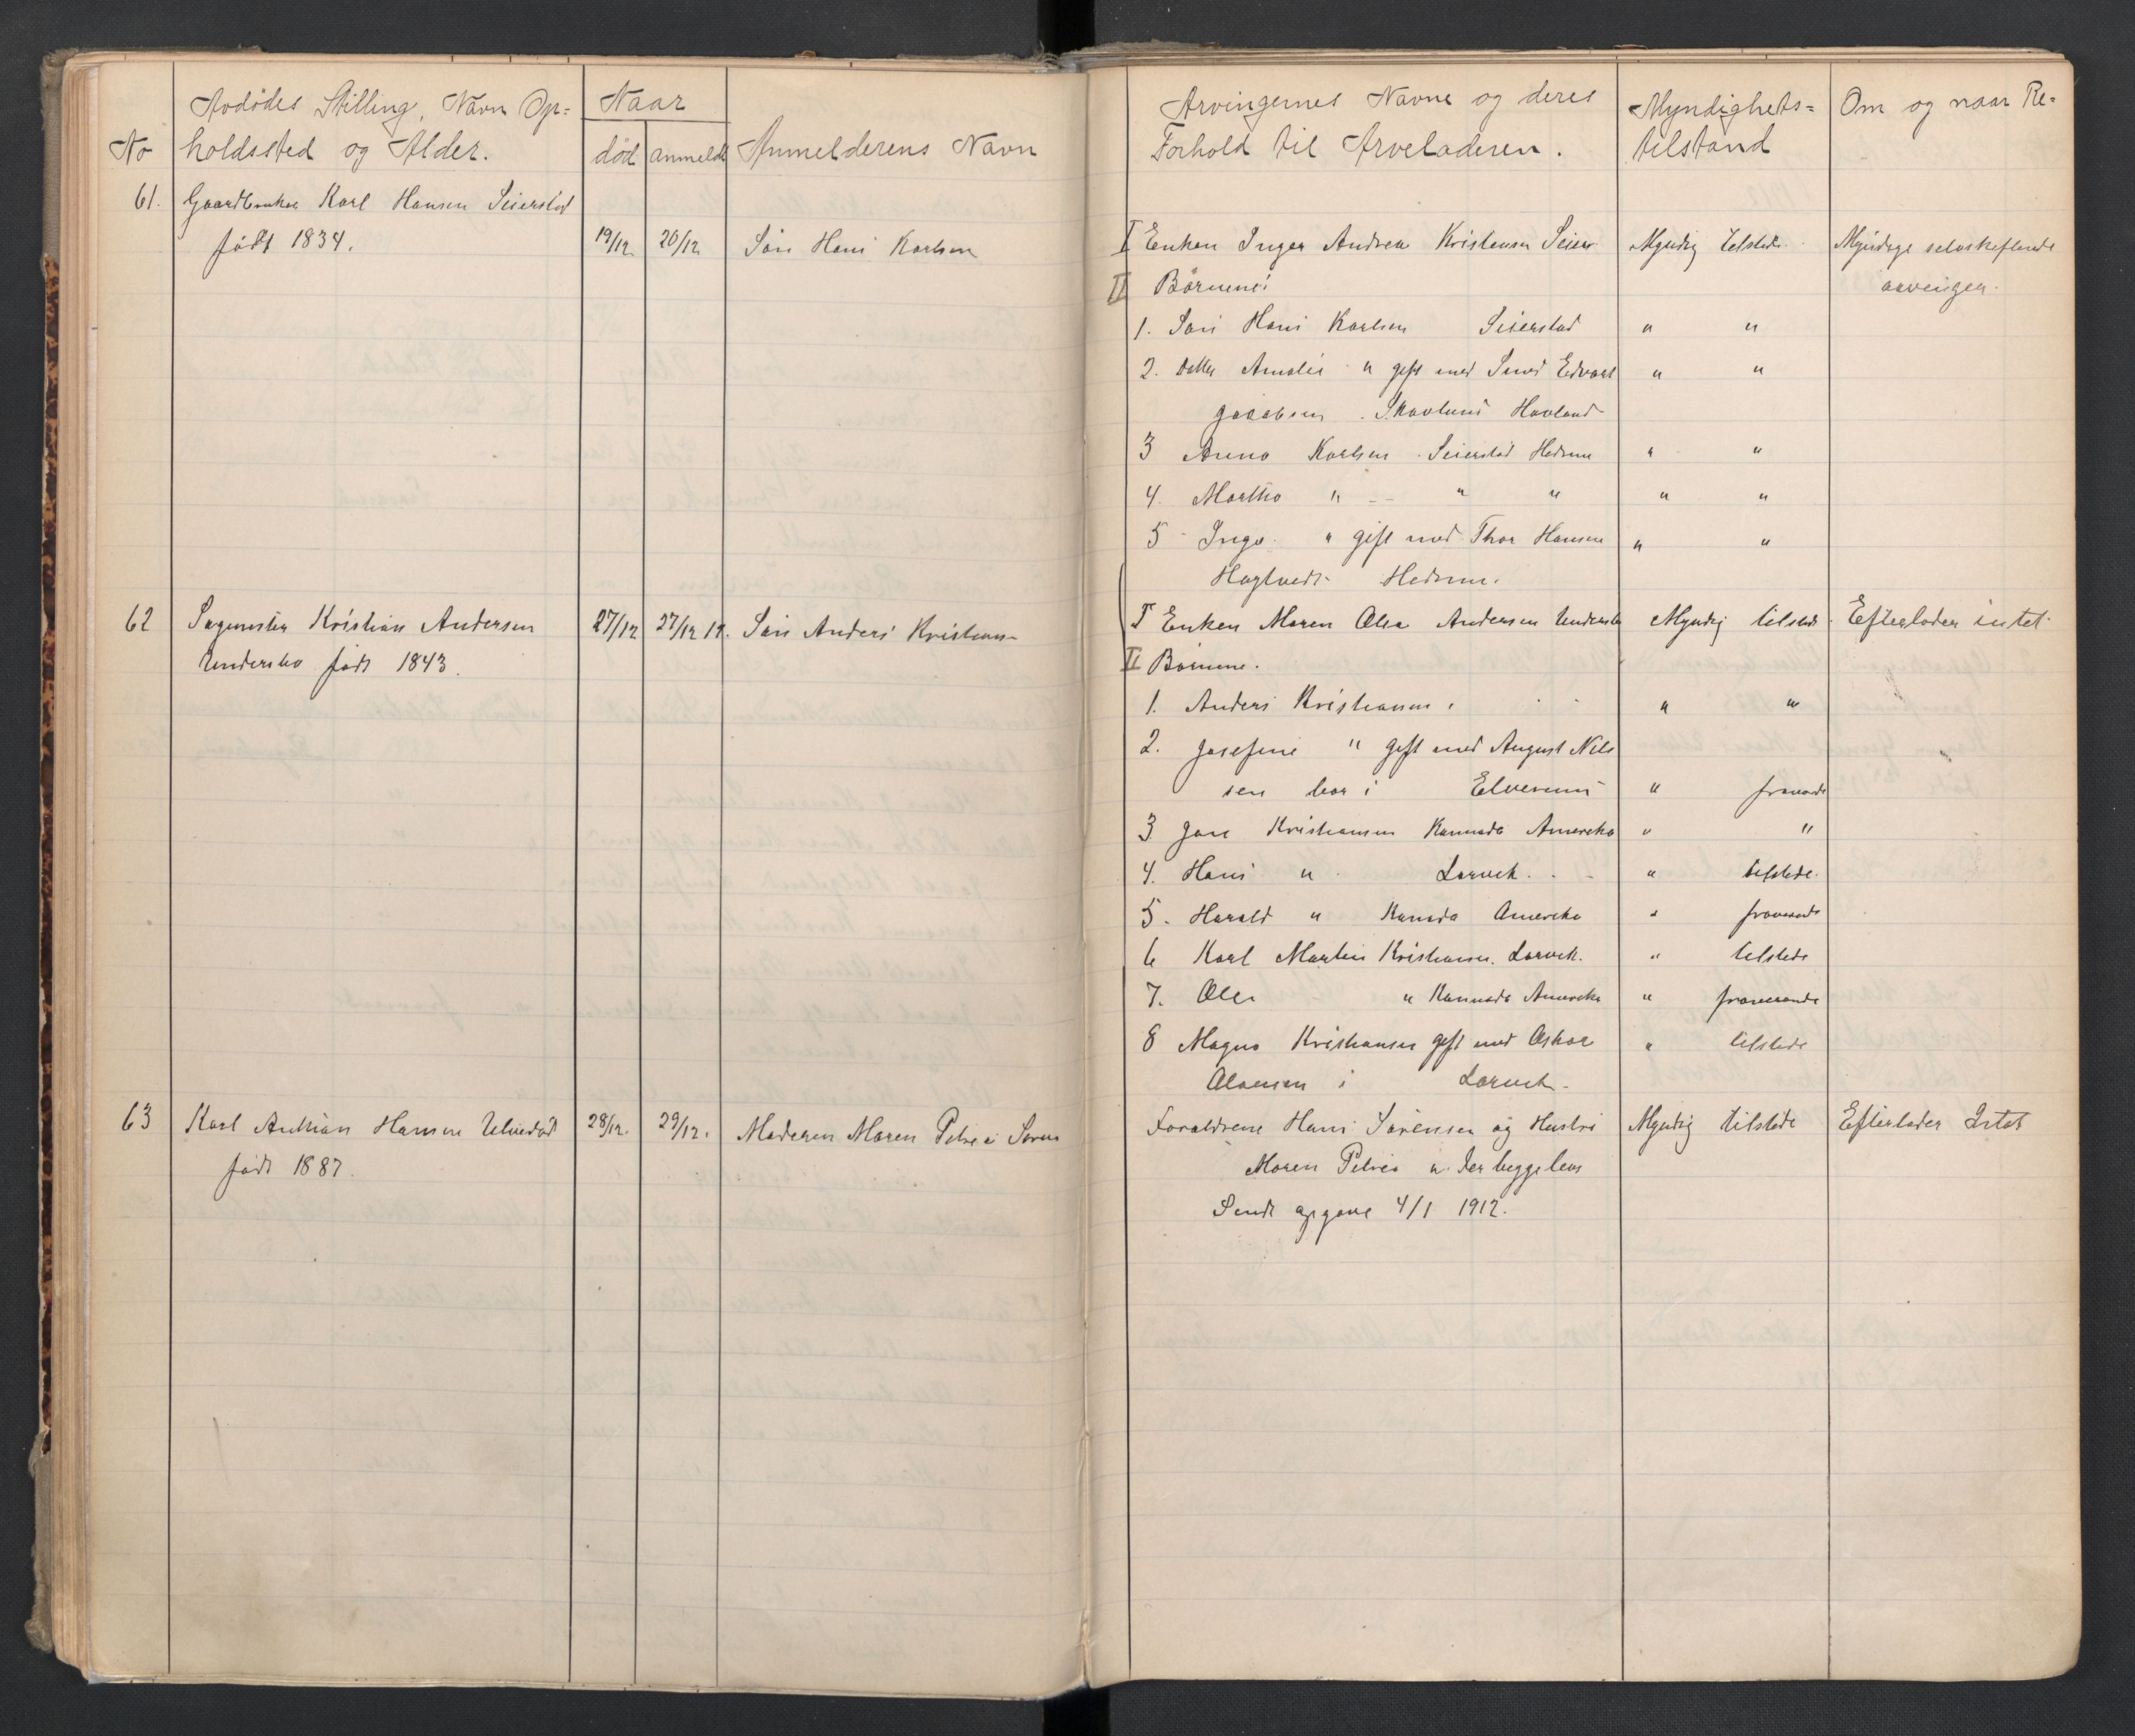 Avdødes Stilling, Navn Op-
holdssted og Alder.
No
Naar
død anmeldt
Anmelderens Navn
61. Gaardbruker Karl Hansen Seierstad
født 1834. 19/12 20/12 Søn Hans Karlsen
62 Sagmester Kristian Andersen 27/12 27/12 11. Søn Anders Kristians-
Undersbo født 1843.
63 Karl Anthian Hansen 28/12. 29/12. Moderen Maren Petrea Søren
født 1887.
Arvingernes Navne og deres
Forhold til Arveladeren.
Myndighets-
tilstand
Om og naar Re-
I Enken Inger Andrea Kristensen Seier Myndig tilstede Myndige selvskiftende
II Børnene: arvinger.
1. Søn Hans Karlsen Seierstad " "
2. Datter Amalie " gift med Smed Edvart " "
Jacobsen Skovlund Hovland
3 Anna Karlsen Seierstad Hedrum " "
4. Martha " -- " " " "
5 Inga " gift med Thor Hansen " "
Hagtvedt Hedrum.
I Enken Maren Olea Andersen Undersbo Myndig tilstede Efterlader intet
II Børnene.
1. Anders Kristiansen " "
2. Josefine " gift med August Nils
sen bor i Elverum " fraværde
3 Jare Kristiansen Kannada Amerika " "
4. Hans " Larvik. " tilstede.
5. Harald " Kanada Amerika " fraværende
6 Karl Martin Kristiansen. Larvik. " tilstede
7. Ole " Kannada Amerika " fraværende
8 Magna Kristiansen gift med Oskar " tilstede
i Larvik
Forældrene Hans Sørensen og Hustru Myndig tilstede Efterlader Intet
Maren Petrea " der begge leve
Sendt opgave 4/1 1912.